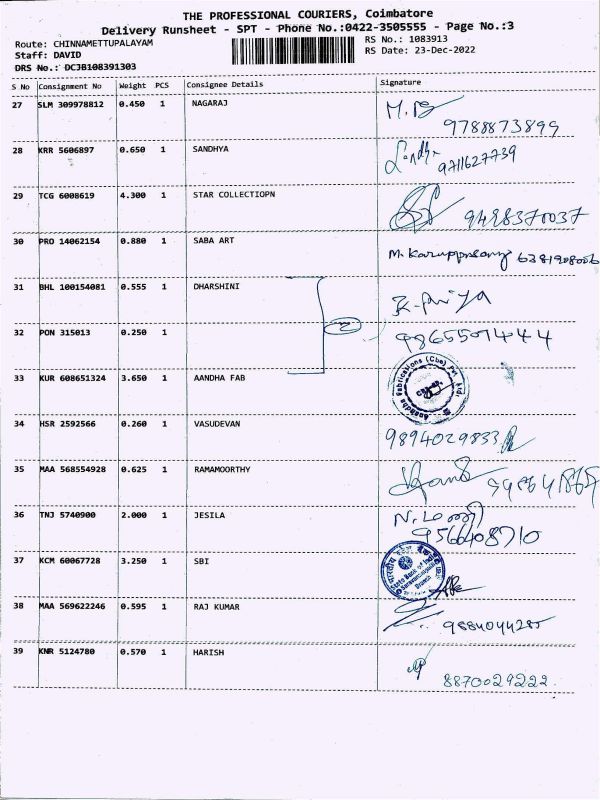 THE PROFESSIONAL COURIERS, Coimbatore
Delivery Runsheet - SPT - Phone No.:0422-3505555 - Page No.:3
Route: CHINNAMETTUPALAYAM RS No.: 1083913
Staff: DAVID RS Date: 23-Dec-2022
DRS No.: DCJB108391303
S No Consignment No Weight PCS Consignee Details Signature
27 SLM 309978812 0.450 1 NAGARAJ
9788873899
28 KRR 5606897 0.650 1 SANDHYA
9711627739
29 TCG 6008619 4.300 1 STAR COLLECTIOPN
9498370037
30 PRO 14062154 0.880 1 SABA ART
M. Karuppasamy 6381908006
31 BHL 100154081 0.555 1 DHARSHINI
K. Priya
32 PON 315013 0.250 1
9865507444
33 KUR 608651324 3.650 1 AANDHA FAB
34 HSR 2592566 0.260 1 VASUDEVAN
9894029833
35 MAA 568554928 0.625 1 RAMAMOORTHY
36 TNJ 5740900 2.000 1 JESILA
9566408710
37 KCM 60067728 3.250 1 SBI
State Bank of India
Branch
38 MAA 569622246 0.595 1 RAJ KUMAR
9884044285
39 KNR 5124780 0.570 1 HARISH
8870029222